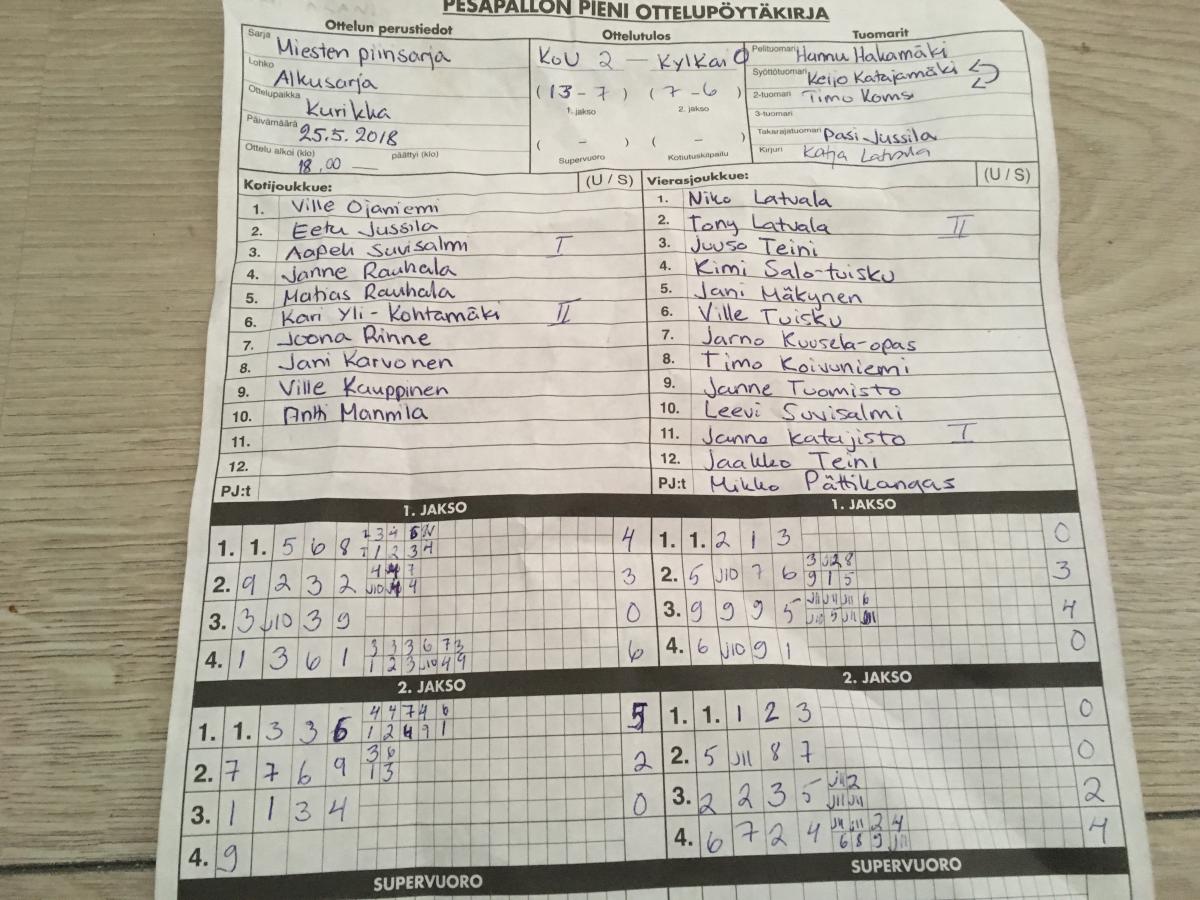 PESÄPALLON PIENI OTTELUPÖYTÄKIRJA
Ottelun perustiedot
Sarja Miesten piirisarja
Lohko Alkusarja
Ottelupaikka Kurikka
Päivämäärä 25.5.2018
Ottelu alkoi (klo) 18.00 päättyi (klo)
Ottelutulos
KoU 2 – KylKai 0
(13 - 7) (7 - 6)
1. jakso 2. jakso
( - ) ( - )
Supervuoro Kotiutuskilpailu
Tuomarit
Pelituomari Hannu Hakamäki
Syöttötuomari Keijo Katajamäki
2-tuomari Timo Komsi
3-tuomari
Takarajatuomari Pasi Jussila
Kirjuri Katja Latvala
Kotijoukkue: (U / S)
1. Ville Ojaniemi
2. Eetu Jussila
3. Aapeli Suvisalmi I
4. Janne Rauhala
5. Matias Rauhala
6. Kari Yli-Kohtamäki II
7. Joona Rinne
8. Jani Karvonen
9. Ville Kauppinen
10. Antti Mannila
11.
12.
PJ:t
Vierasjoukkue: (U / S)
1. Niko Latvala
2. Tony Latvala II
3. Juuso Teini
4. Kimi Salo-tuisku
5. Jani Mäkynen
6. Ville Tuisku
7. Jarno Kuusela-opas
8. Timo Koivuniemi
9. Janne Tuomisto
10. Leevi Suvisalmi
11. Janne Katajisto I
12. Jaakko Teini
PJ:t Mikko Pättikangas
1. JAKSO
1. 1. 5 6 8 4
2. 9 2 3 2 3
3. 3 J10 3 9 0
4. 1 3 6 1 3 3 3 6 7 3 6
1 2 3 J10 4 9
1. JAKSO
1. 1. 2 1 3 0
2. 5 J10 7 6 3
9 1 5
3. 9 9 9 5 4
4. 6 J10 9 1 0
2. JAKSO
1. 1. 3 3 6 4 4 7 4 6 5
1 2 4 9 1
2. 7 7 6 9 3 6 2
1 3
3. 1 1 3 4 0
4. 9
2. JAKSO
1. 1. 1 2 3 0
2. 5 J11 8 7 0
3. 2 2 3 5 J11 2 2
J11 J11
4. 6 7 2 4 J11 J11 2 4 4
6 8 9 J11
SUPERVUORO
SUPERVUORO